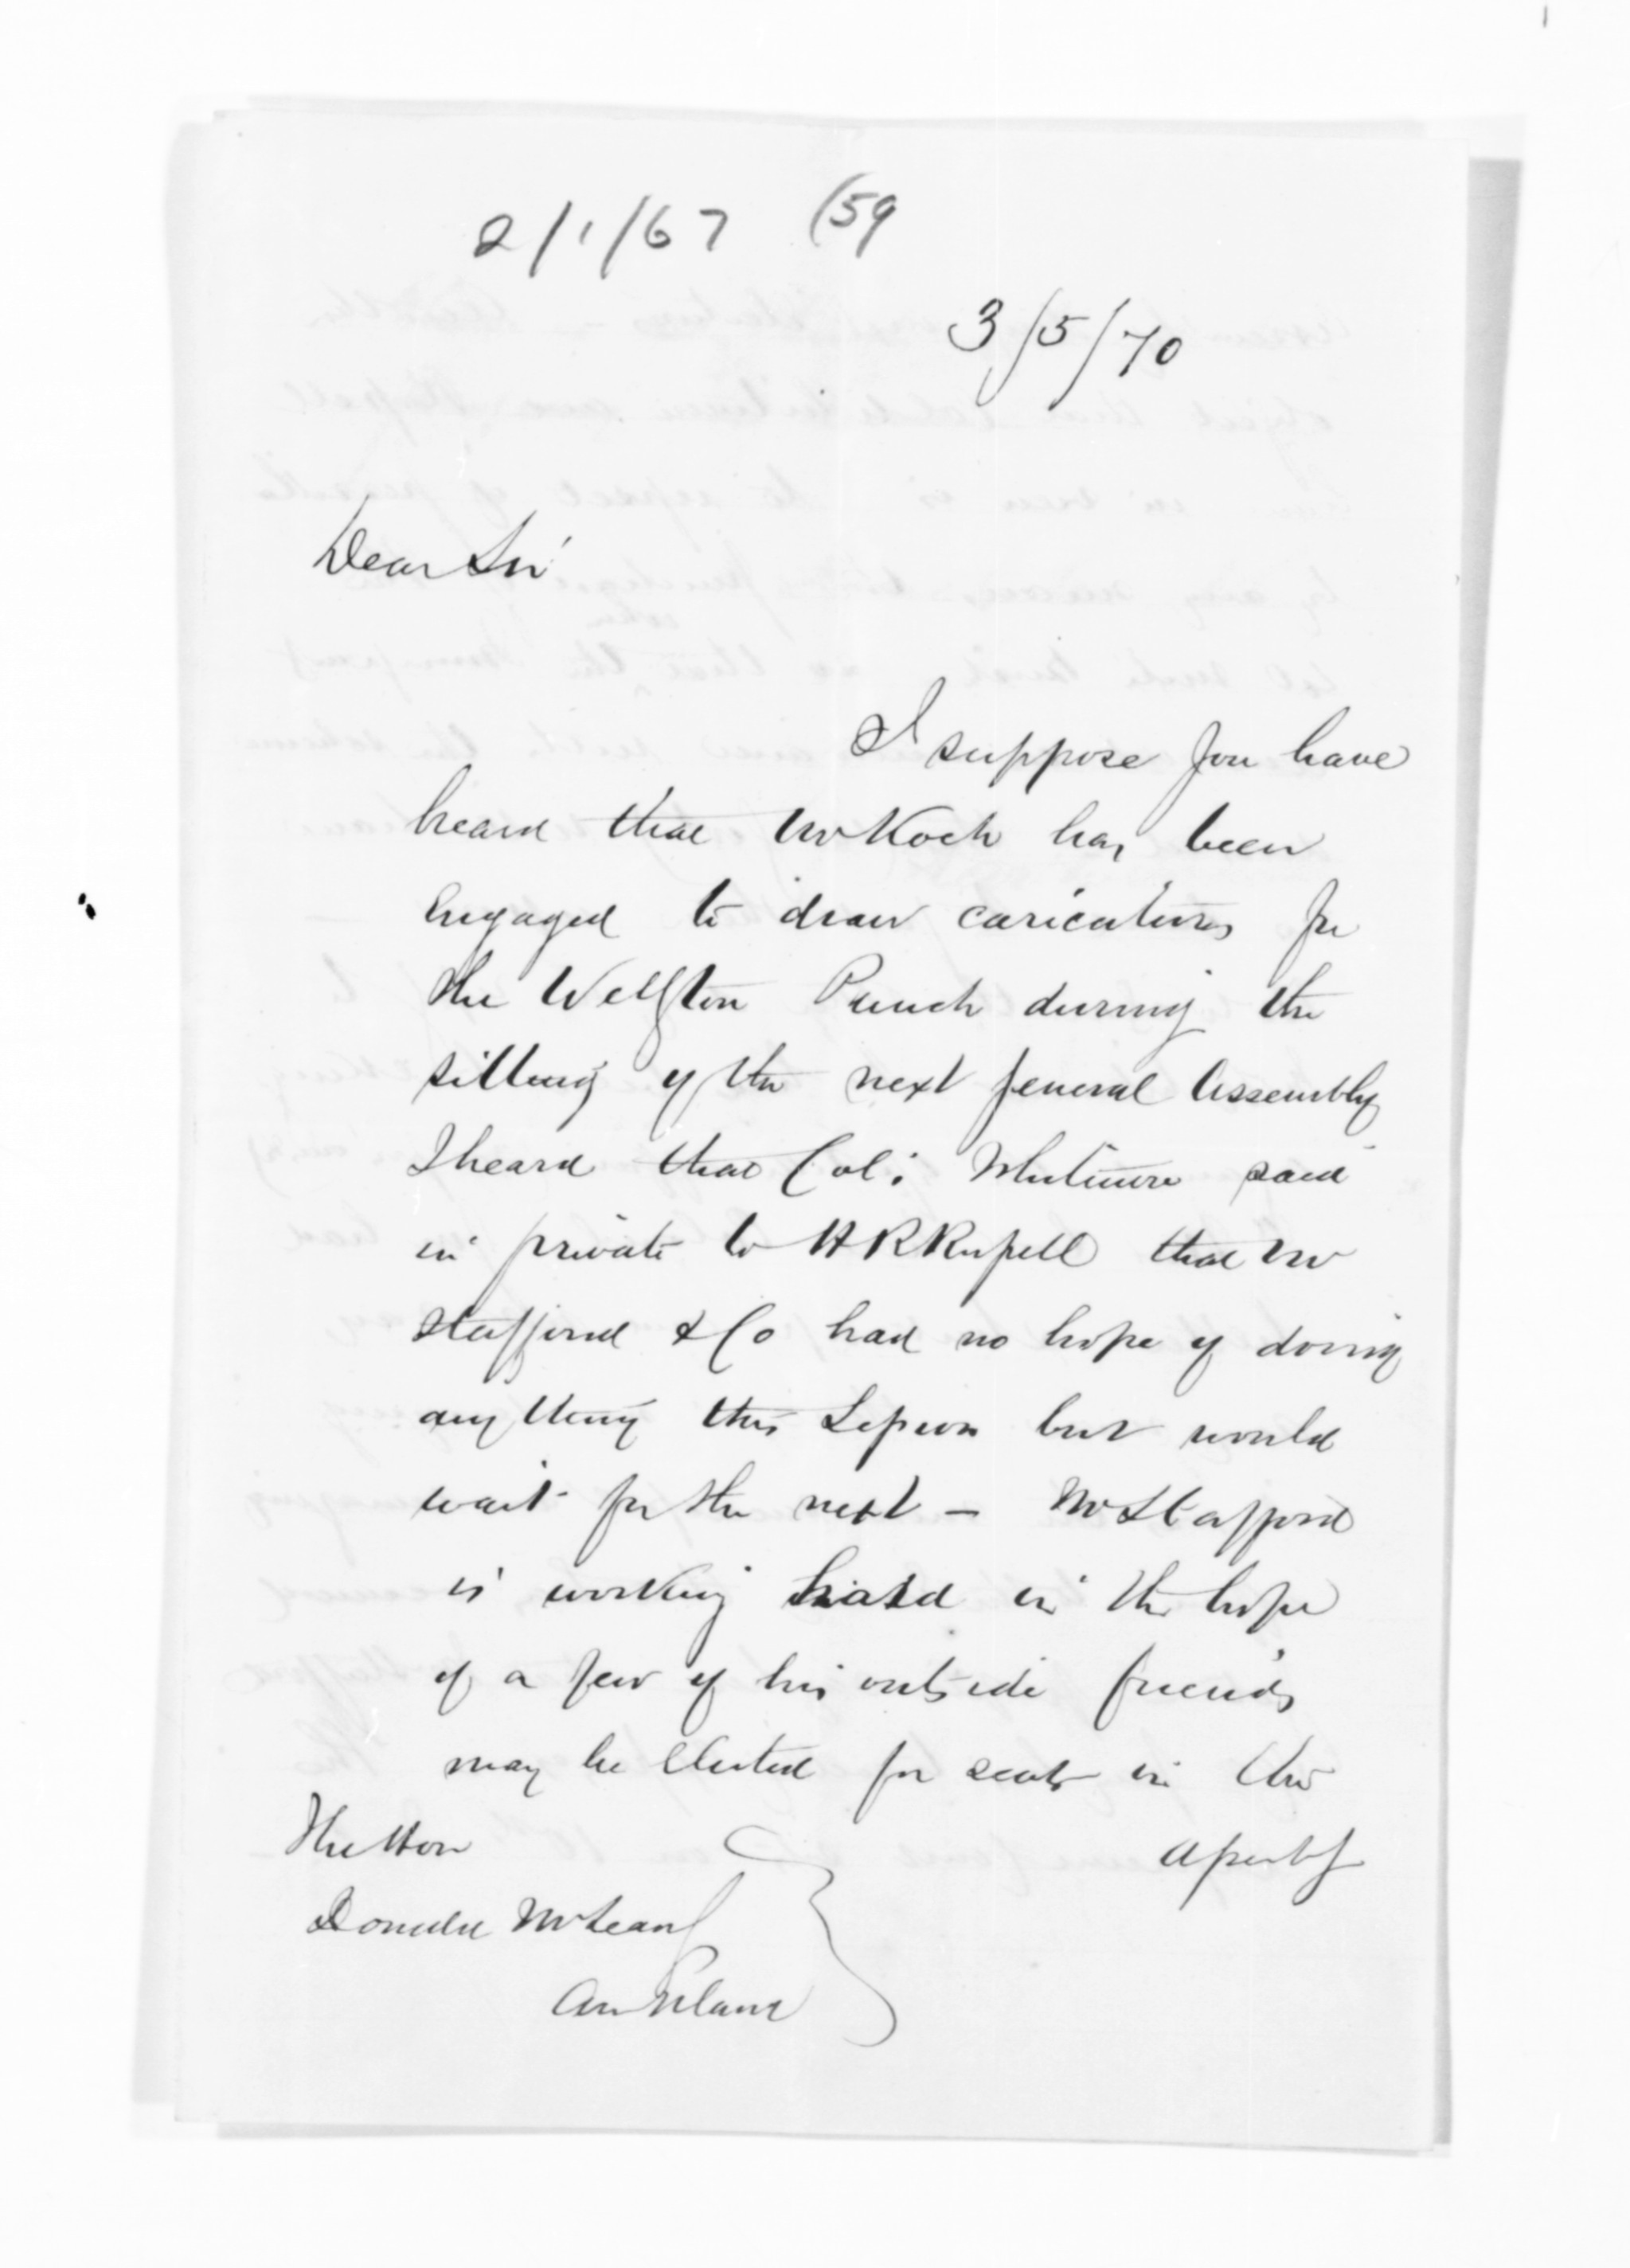 2/1/67 (59
3/5/70
Dear Sir
I suppose you have
heard that Mr Koch has been
engaged to draw caricatures for
the Wellgton Punch during the
sitting of the next general Assembly
I heard that Col: Whitmore said
in private to H R Russell that Mr
Stafford & Co had no hope of doing
anything this Session but would
wait for the next - Mr Stafford
is working hard in the hope
of a few of his outside friends
may be elected for seats in the
The Hon
Donald McLean
Auckland